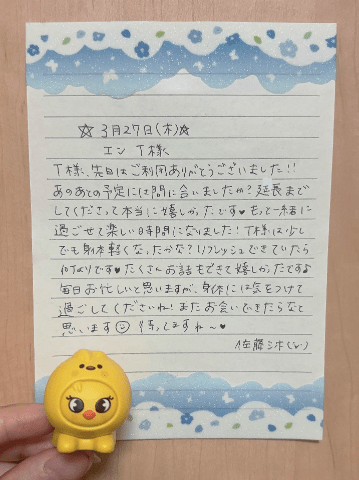 ☆ 3月27日(木)☆
エン T様
T様、先日はご利用ありがとうございました!!
あのあとの予定には間に合いましたか?延長まで
してくださって本当に嬉しかったです♥もっと一緒に
過ごせて楽しい時間になりました!T様は少し
でも身体軽くなったかな?リフレッシュできていたら
何よりです♥たくさんお話もできて嬉しかったですよ
毎日お忙しいと思いますが、身体には気をつけて
過ごしてくださいね!またお会いできたらなと
思います☺待ってますね〜♥
佐藤シホ